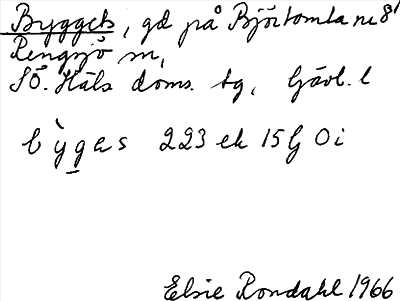 Byggets, gd på Björtomta nr 8¹
Rengsjö sn,
SÖ. Häls doms. tg, Gävl. l
bỳges 223 ek 15 G Oi
Elsie Rondahl 1966